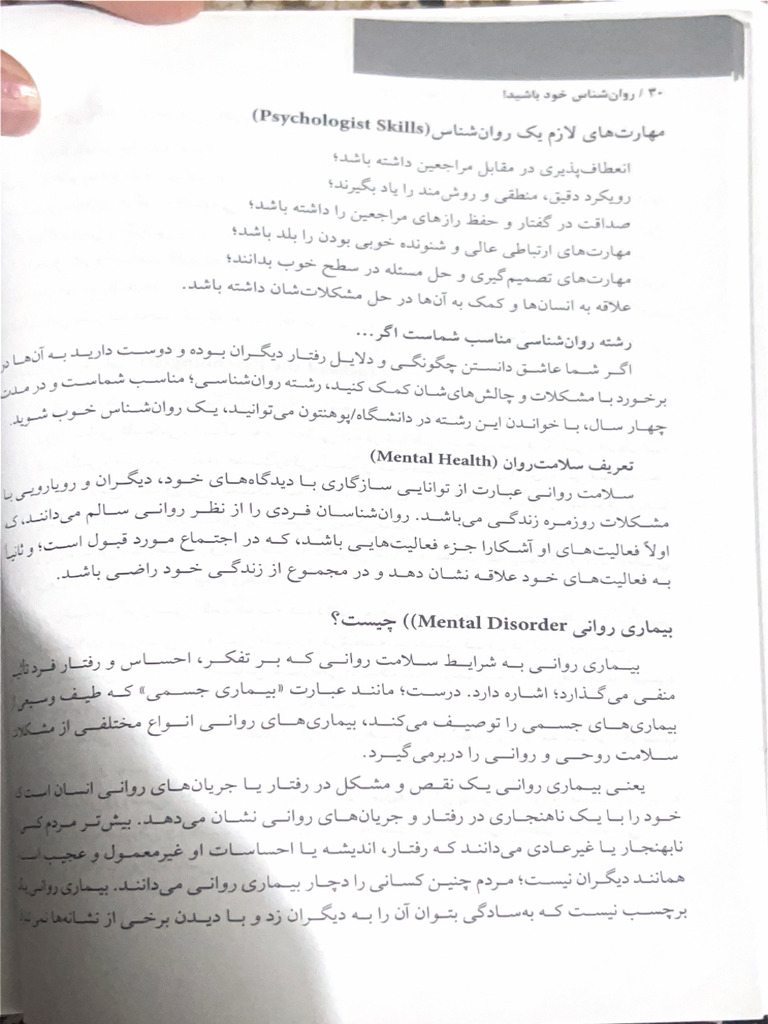 ۳۰ / روان‌شناس خود باشید!
مهارت‌های لازم یک روان‌شناس(Psychologist Skills)
انعطاف‌پذیری در مقابل مراجعین داشته باشد؛
رویکرد دقیق، منطقی و روش‌مند را یاد بگیرند؛
صداقت در گفتار و حفظ رازهای مراجعین را داشته باشد؛
مهارت‌های ارتباطی عالی و شنونده خوبی بودن را بلد باشد؛
مهارت‌های تصمیم‌گیری و حل مسئله در سطح خوب بدانند؛
علاقه به انسان‌ها و کمک به آن‌ها در حل مشکلات‌شان داشته باشد.
رشته روان‌شناسی مناسب شماست اگر...
اگر شما عاشق دانستن چگونگی و دلایل رفتار دیگران بوده و دوست دارید به آن‌ها در
برخورد با مشکلات و چالش‌های‌شان کمک کنید، رشته روان‌شناسی؛ مناسب شماست و در مدت
چهار سال، با خواندن این رشته در دانشگاه/پوهنتون می‌توانید، یک روان‌شناس خوب شوید.
تعریف سلامت‌روان (Mental Health)
سلامت روانی عبارت از توانایی سازگاری با دیدگاه‌های خود، دیگران و رویارویی با
مشکلات روزمره زندگی می‌باشد. روان‌شناسان فردی را از نظر روانی سالم می‌دانند، که
اولاً فعالیت‌های او آشکارا جزء فعالیت‌هایی باشد، که در اجتماع مورد قبول است؛ و ثانیاً
به فعالیت‌های خود علاقه نشان دهد و در مجموع از زندگی خود راضی باشد.
بیماری روانی Mental Disorder)) چیست؟
بیماری روانی به شرایط سلامت روانی که بر تفکر، احساس و رفتار فرد تأثیر
منفی می‌گذارد؛ اشاره دارد. درست؛ مانند عبارت «بیماری جسمی» که طیف وسیعی از
بیماری‌های جسمی را توصیف می‌کند، بیماری‌های روانی انواع مختلفی از مشکلات
سلامت روحی و روانی را دربرمی‌گیرد.
یعنی بیماری روانی یک نقص و مشکل در رفتار یا جریان‌های روانی انسان است که
خود را با یک ناهنجاری در رفتار و جریان‌های روانی نشان می‌دهد. بیش‌تر مردم کسی
نابهنجار یا غیرعادی می‌دانند که رفتار، اندیشه یا احساسات او غیرمعمول و عجیب است
همانند دیگران نیست؛ مردم چنین کسانی را دچار بیماری روانی می‌دانند. بیماری روانی یک
برچسب نیست که به‌سادگی بتوان آن را به دیگران زد و با دیدن برخی از نشانه‌ها